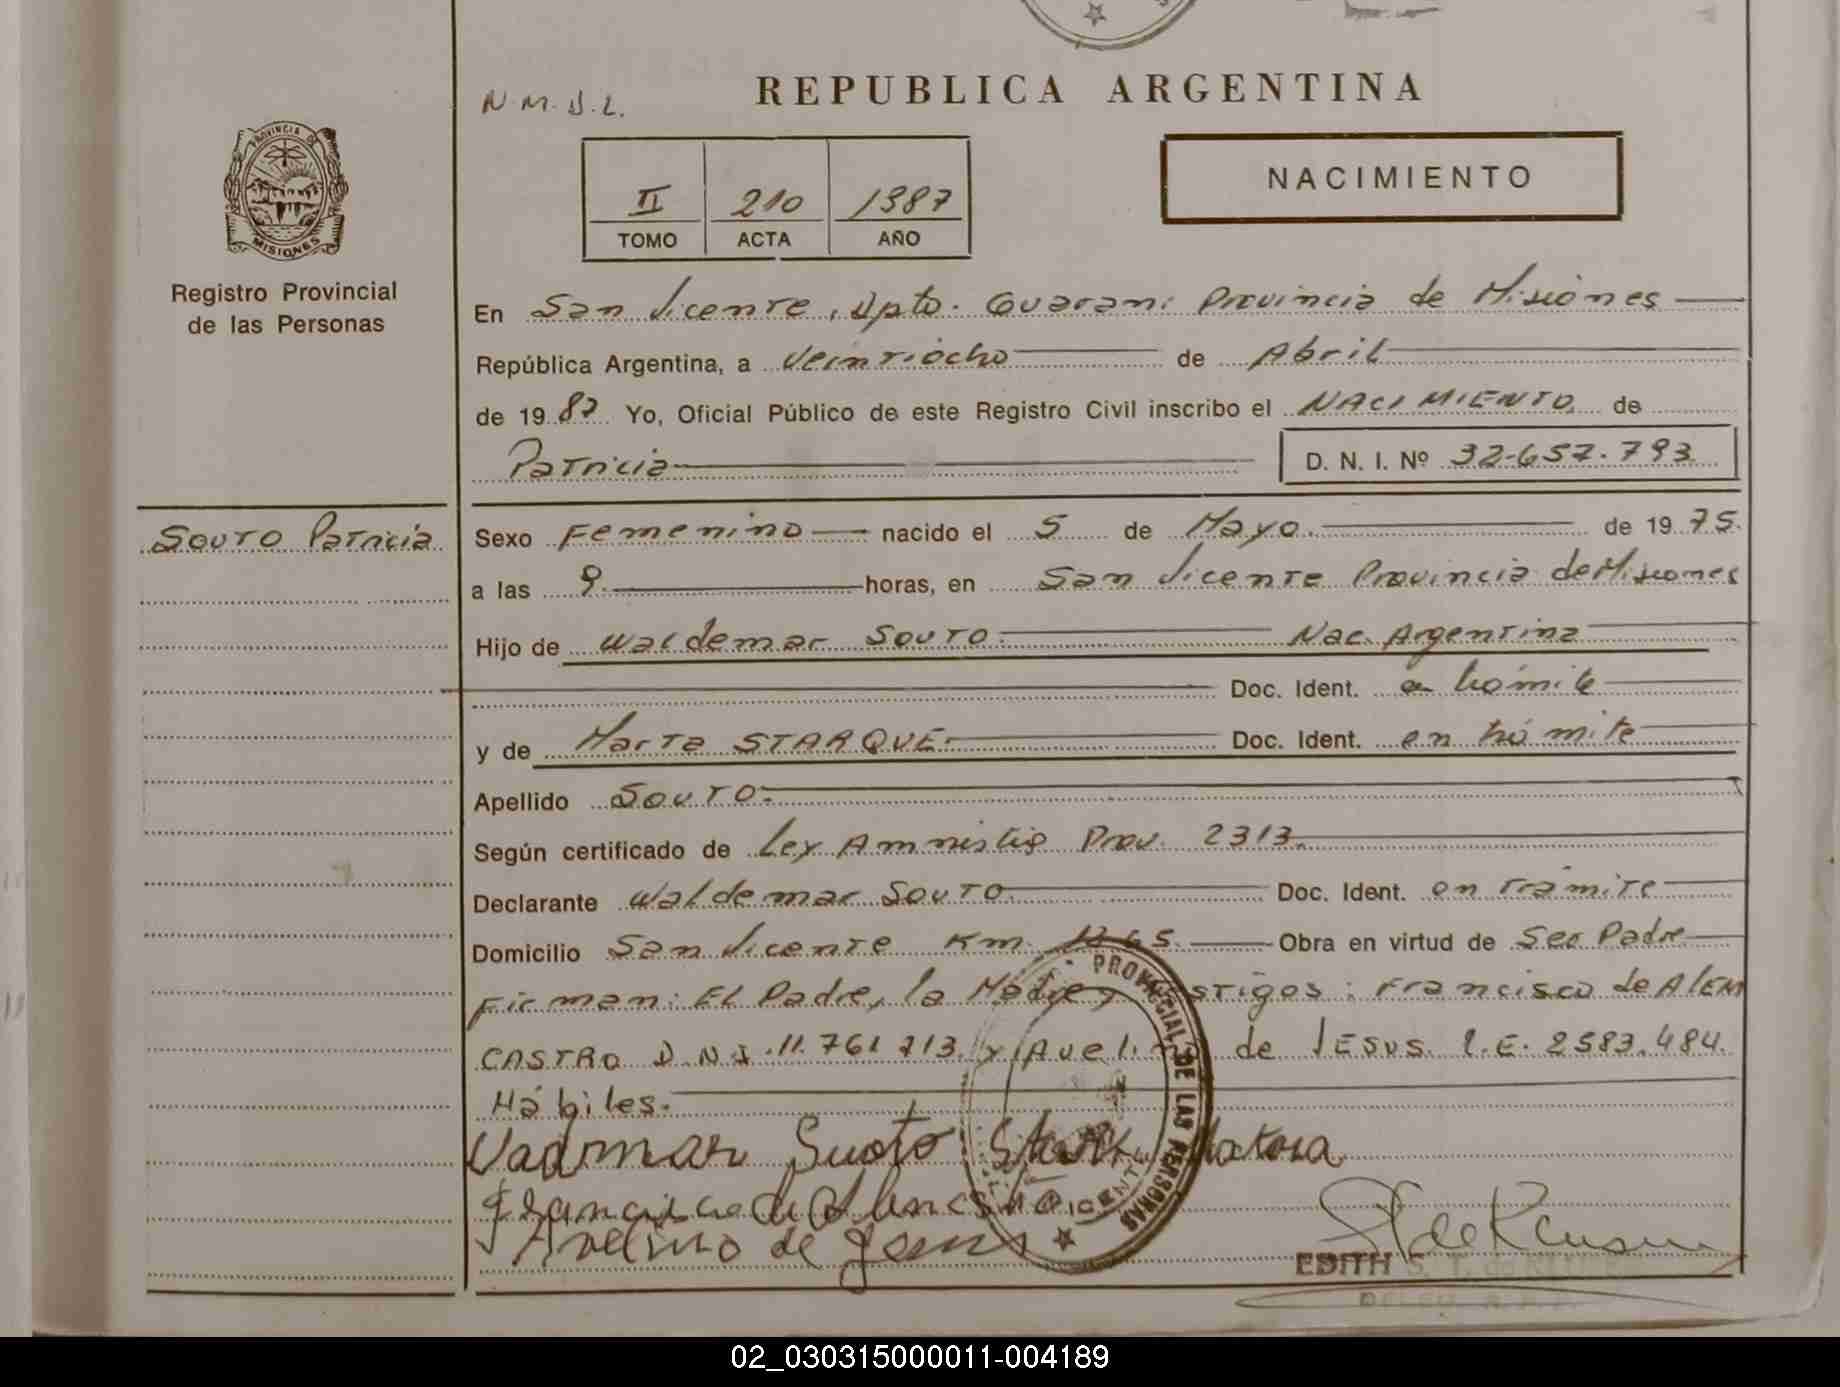 REPUBLICA ARGENTINA
N.M.J.L.
NACIMIENTO
II 210 1987
TOMO ACTA AÑO
PROVINCIA DE
MISIONES
Registro Provincial
de las Personas
En San Vicente, Dpto. Guarani Provincia de Misiones
República Argentina, a Veintiocho de Abril
de 1987 Yo, Oficial Público de este Registro Civil inscribo el NACIMIENTO de
Patricia D. N. I. Nº 32.657.793
SOUTO Patricia
Sexo Femenino nacido el 5 de Mayo. de 1975.
a las 9. horas, en San Vicente Provincia de Misiones
Hijo de Waldemar SOUTO. Nac. Argentina
Doc. Ident. en trámite
y de Marta STARQUE. Doc. Ident. en trámite
Apellido SOUTO.
Según certificado de Ley Amnistia Prov. 2313.
Declarante Waldemar SOUTO Doc. Ident. en tramite
Domicilio San Vicente Km. Obra en virtud de Ser Padre
Firman: El Padre, la Madre y Testigos: Francisco de ALEM
CASTRO D.N.I. 11.761.713. y Avelino de JESUS L.E. 2583.484.
Hábiles.
Suoto
Avelino de
PROVINCIAL DE LAS PERSONAS
EDITH S. T. de
02_030315000011-004189